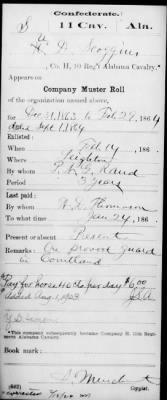 Confederate.
S 11 Cav. Ala.
D. Scoggins
, Co. H, 10 Reg't Alabama Cavalry.*
Appears on
Company Muster Roll
of the organization named above,
for Dec 31, 1863 to Feb 29, 1864
dated Sept 1, 1864
Enlisted:
When Feb 14, 186
Where Leighton
By whom
Period 3 years
Last paid:
By whom Thomason
To what time Jan 24, 186
Present or absent Present
Remarks: On provost guard
in Courtland
Pay for horse 40 cts per day $6.00
Aug. 1, 1903
*This company subsequently became Company H, 11th Regiment Alabama Cavalry.
Book mark:
(642) Copyist.